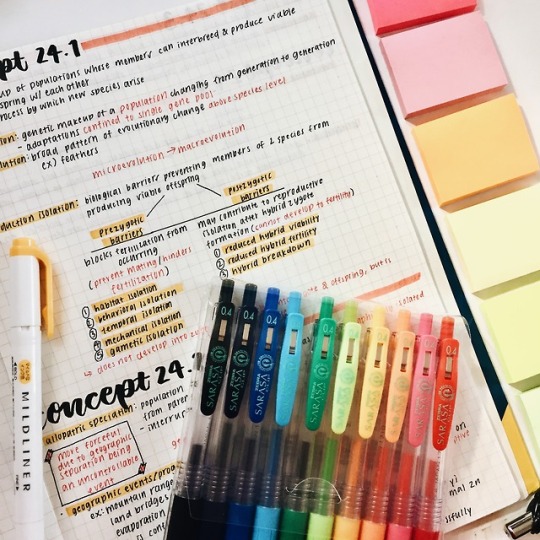 pt 24.1
up of populations whose members can interbreed & produce viable
spring w/ each other
rocess by which new species arise
ion: genetic makeup of a population changing from generation to generation
- adaptations confined to single gene pool
lution: broad pattern of evolutionary change above species level
ex) feathers
microevolution → macroevolution
oduction isolation: biological barriers preventing members of 2 species from
producing viable offspring
prezygotic
barriers
blocks fertilization from
occurring
(prevent mating/hinders
fertilization)
① habitat isolation
② behavioral isolation
③ temporal isolation
④ mechanical isolation
⑤ gametic isolation
↳ does not develop into
postzygotic
barriers
may contribute to reproductive
isolation after hybrid zygote
formation (cannot develop to fertility)
① reduced hybrid viability
② reduced hybrid fertility
③ hybrid breakdown
& offspring, but is
isolated
concept 24.
allopatric speciation: population
from paren
- interrup
more forceful
due to geographic
separation being
an uncontrollable
event
- geographic events/pro
ex: mountain range
land bridges
evaporation
MILDLINER
0.4
0.4
0.4
0.4
0.4
0.4
0.4
SARASA
SARASA
SARASA
SARASA
SARASA
SARASA
SARASA
SARASA
SARASA